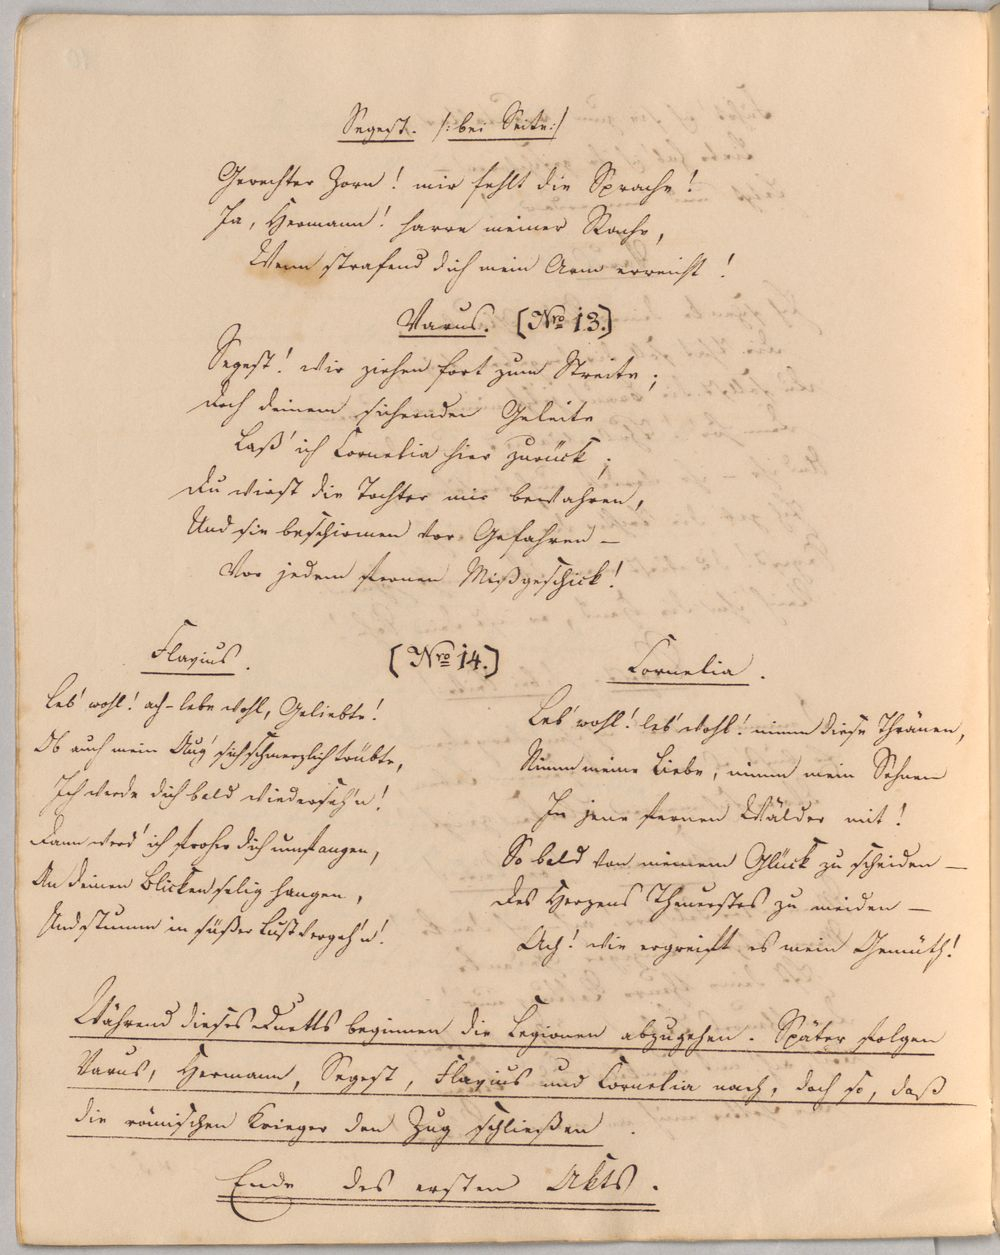 Segest. /:bei Seite:/
Gerechter Zorn! mir fehlt die Sprache!
Ja, Hermann! harre meiner Rache,
Wenn strafend dich mein Arm erreicht!
Varus. [Nro 13.]
Segest! wir ziehen fort zum Streite;
Doch deinem sichernden Geleite
Laß' ich Cornelia hier zurück;
Du wirst die Tochter mir bewahren,
Und sie beschirmen vor Gefahren –
Vor jedem fernen Mißgeschick!
[Nro 14.]
Flavius.
Leb' wohl! ach – lebe wohl, Geliebte!
Ob auch mein Aug' sich schmerzlich trübte,
Ich werde dich bald wiederseh'n!
Dann werd' ich froher dich umfangen,
An deinen Blicken selig hangen,
Und stumm in süßer Lust vergeh'n!
Cornelia.
Leb' wohl! leb' wohl! nimm diese Thränen,
Nimm meine Liebe, nimm mein Sehnen
In jene fernen Wälder mit!
So bald von meinem Glück zu scheiden –
Des Herzens Theuerstes zu meiden –
Ach! wie ergreift es mein Gemüth!
Während dieses Duetts beginnen die Legionen abzugehen. Später folgen
Varus, Hermann, Segest, Flavius und Cornelia nach, doch so, daß
die römischen Krieger den Zug schließen.
Ende des ersten Akts.